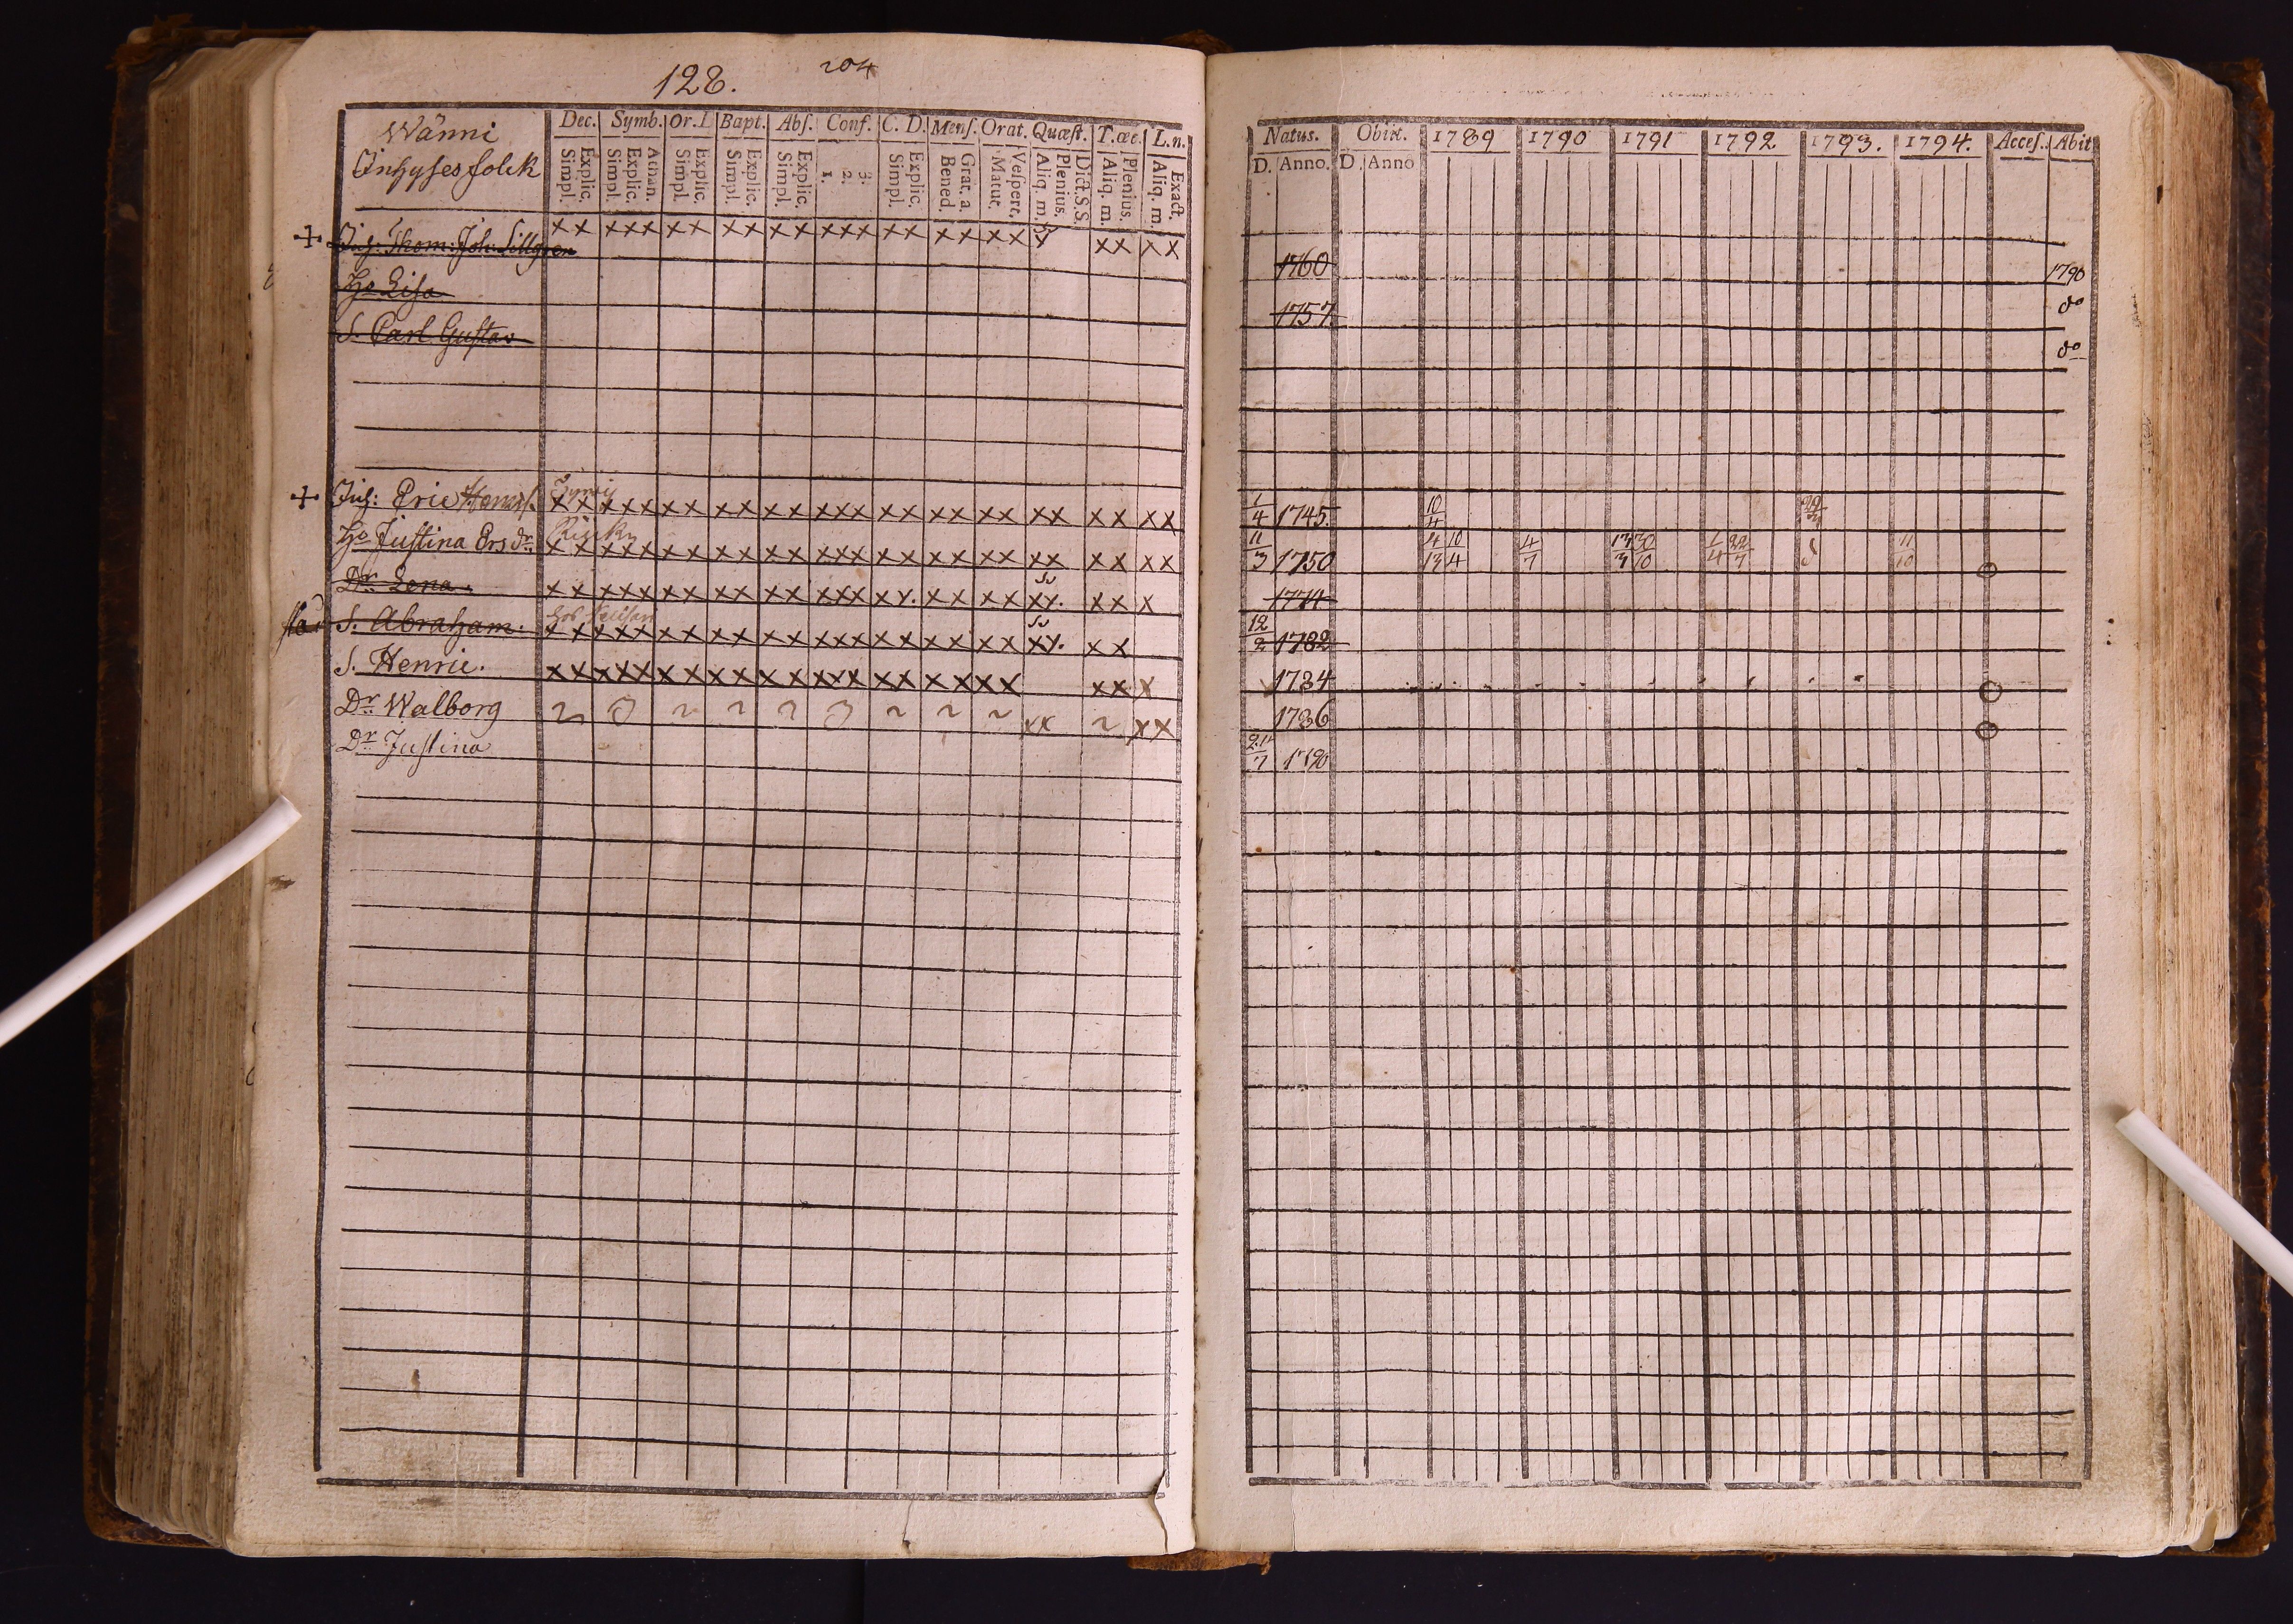 128. 204
Wänni
Inhyses folck
Dec. Symb. Or. D. Bapt. Abs. Conf. C. D. Mens. Orat. Quæst. T. œc. L. n.
Simpl. Explic. Simpl. Explic. Athan. Simpl. Explic. Simpl. Explic. Simpl. Explic. 1. 2. 3. Simpl. Explic. Bened. Grat. a. Matut. Vespert. Aliq. m. Plenius. Dict. S.S. Aliq. m. Plenius. Aliq. m. Exact.
Natus. Obiit. 1789 1790 1791 1792 1793. 1794. Acces. Abit
D. Anno. D. Anno
Inh: Thom: Joh: Sillgren x x x x x x x x x x x x x x x x x x x x x x x x x x 1760 1790
Ho Lisa 1757. do
S. Carl Gustav do
Inh: Eric Henrs. x x x x x x x x x x x x x x x x x x x x x x x x x x 1/4 1745. 10/4
Ho Justina Ers dr. x x x x x x x x x x x x x x x x x x x x x x x x x x 11/3 1750 4/13 10/4 4/7 13/3 30/10 1/4 22/7 11/10
Dr. Lena. x x x x x x x x x x x x x x x x x x x x x x x x x 1774
S. Abraham. x x x x x x x x x x x x x x x x x x x x x x x x 12/2 1782
S. Henric. x x x x x x x x x x x x x x x x x x x x x x x 1784
Dr. Walborg x x x x 1786
Dr. Justina 21/7 1790